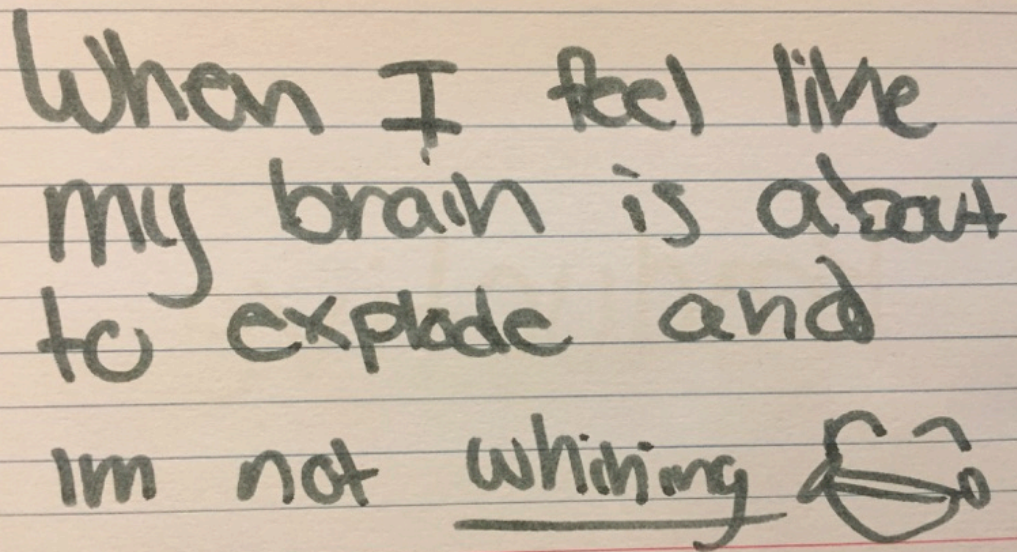 When I feel like
my brain is about
to explode and
Im not whining